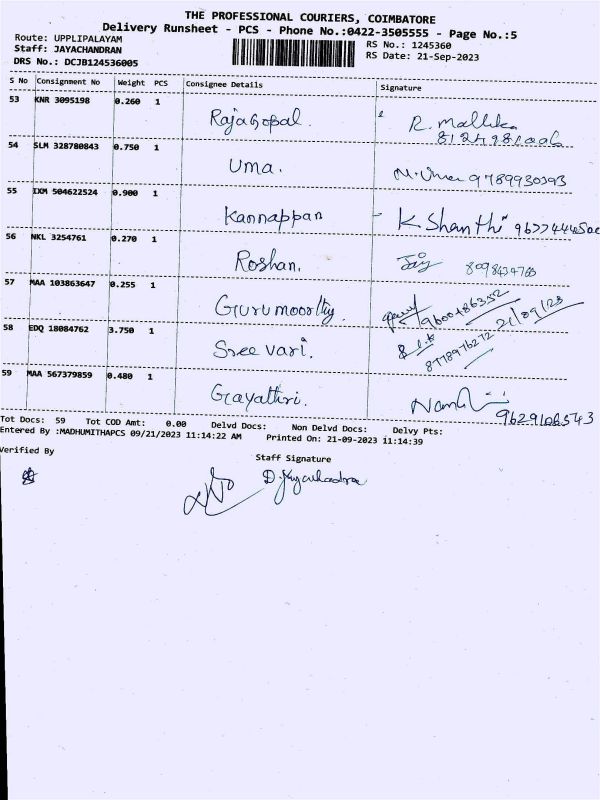 THE PROFESSIONAL COURIERS, COIMBATORE
Delivery Runsheet - PCS - Phone No.:0422-3505555 - Page No.:5
Route: UPPLIPALAYAM
Staff: JAYACHANDRAN
DRS No.: DCJB124536005
RS No.: 1245360
RS Date: 21-Sep-2023
S No Consignment No Weight PCS Consignee Details Signature
53 KNR 3095198 0.260 1 Rajagopal. R. Mallika
54 SLM 328780843 0.750 1 Uma. 9789930393
55 IXM 504622524 0.900 1 Kannappan - K. Shanthi
56 NKL 3254761 0.270 1 Roshan.
57 MAA 103863647 0.255 1 Gurumoorthy. 21/09/23
58 EDQ 18084762 3.750 1 Sree vari.
59 MAA 567379859 0.480 1 Gayathri.
9629106543
Tot Docs: 59 Tot COD Amt: 0.00 Delvd Docs: Non Delvd Docs: Delvy Pts:
Entered By :MADHUMITHAPCS 09/21/2023 11:14:22 AM Printed On: 21-09-2023 11:14:39
Verified By
Staff Signature